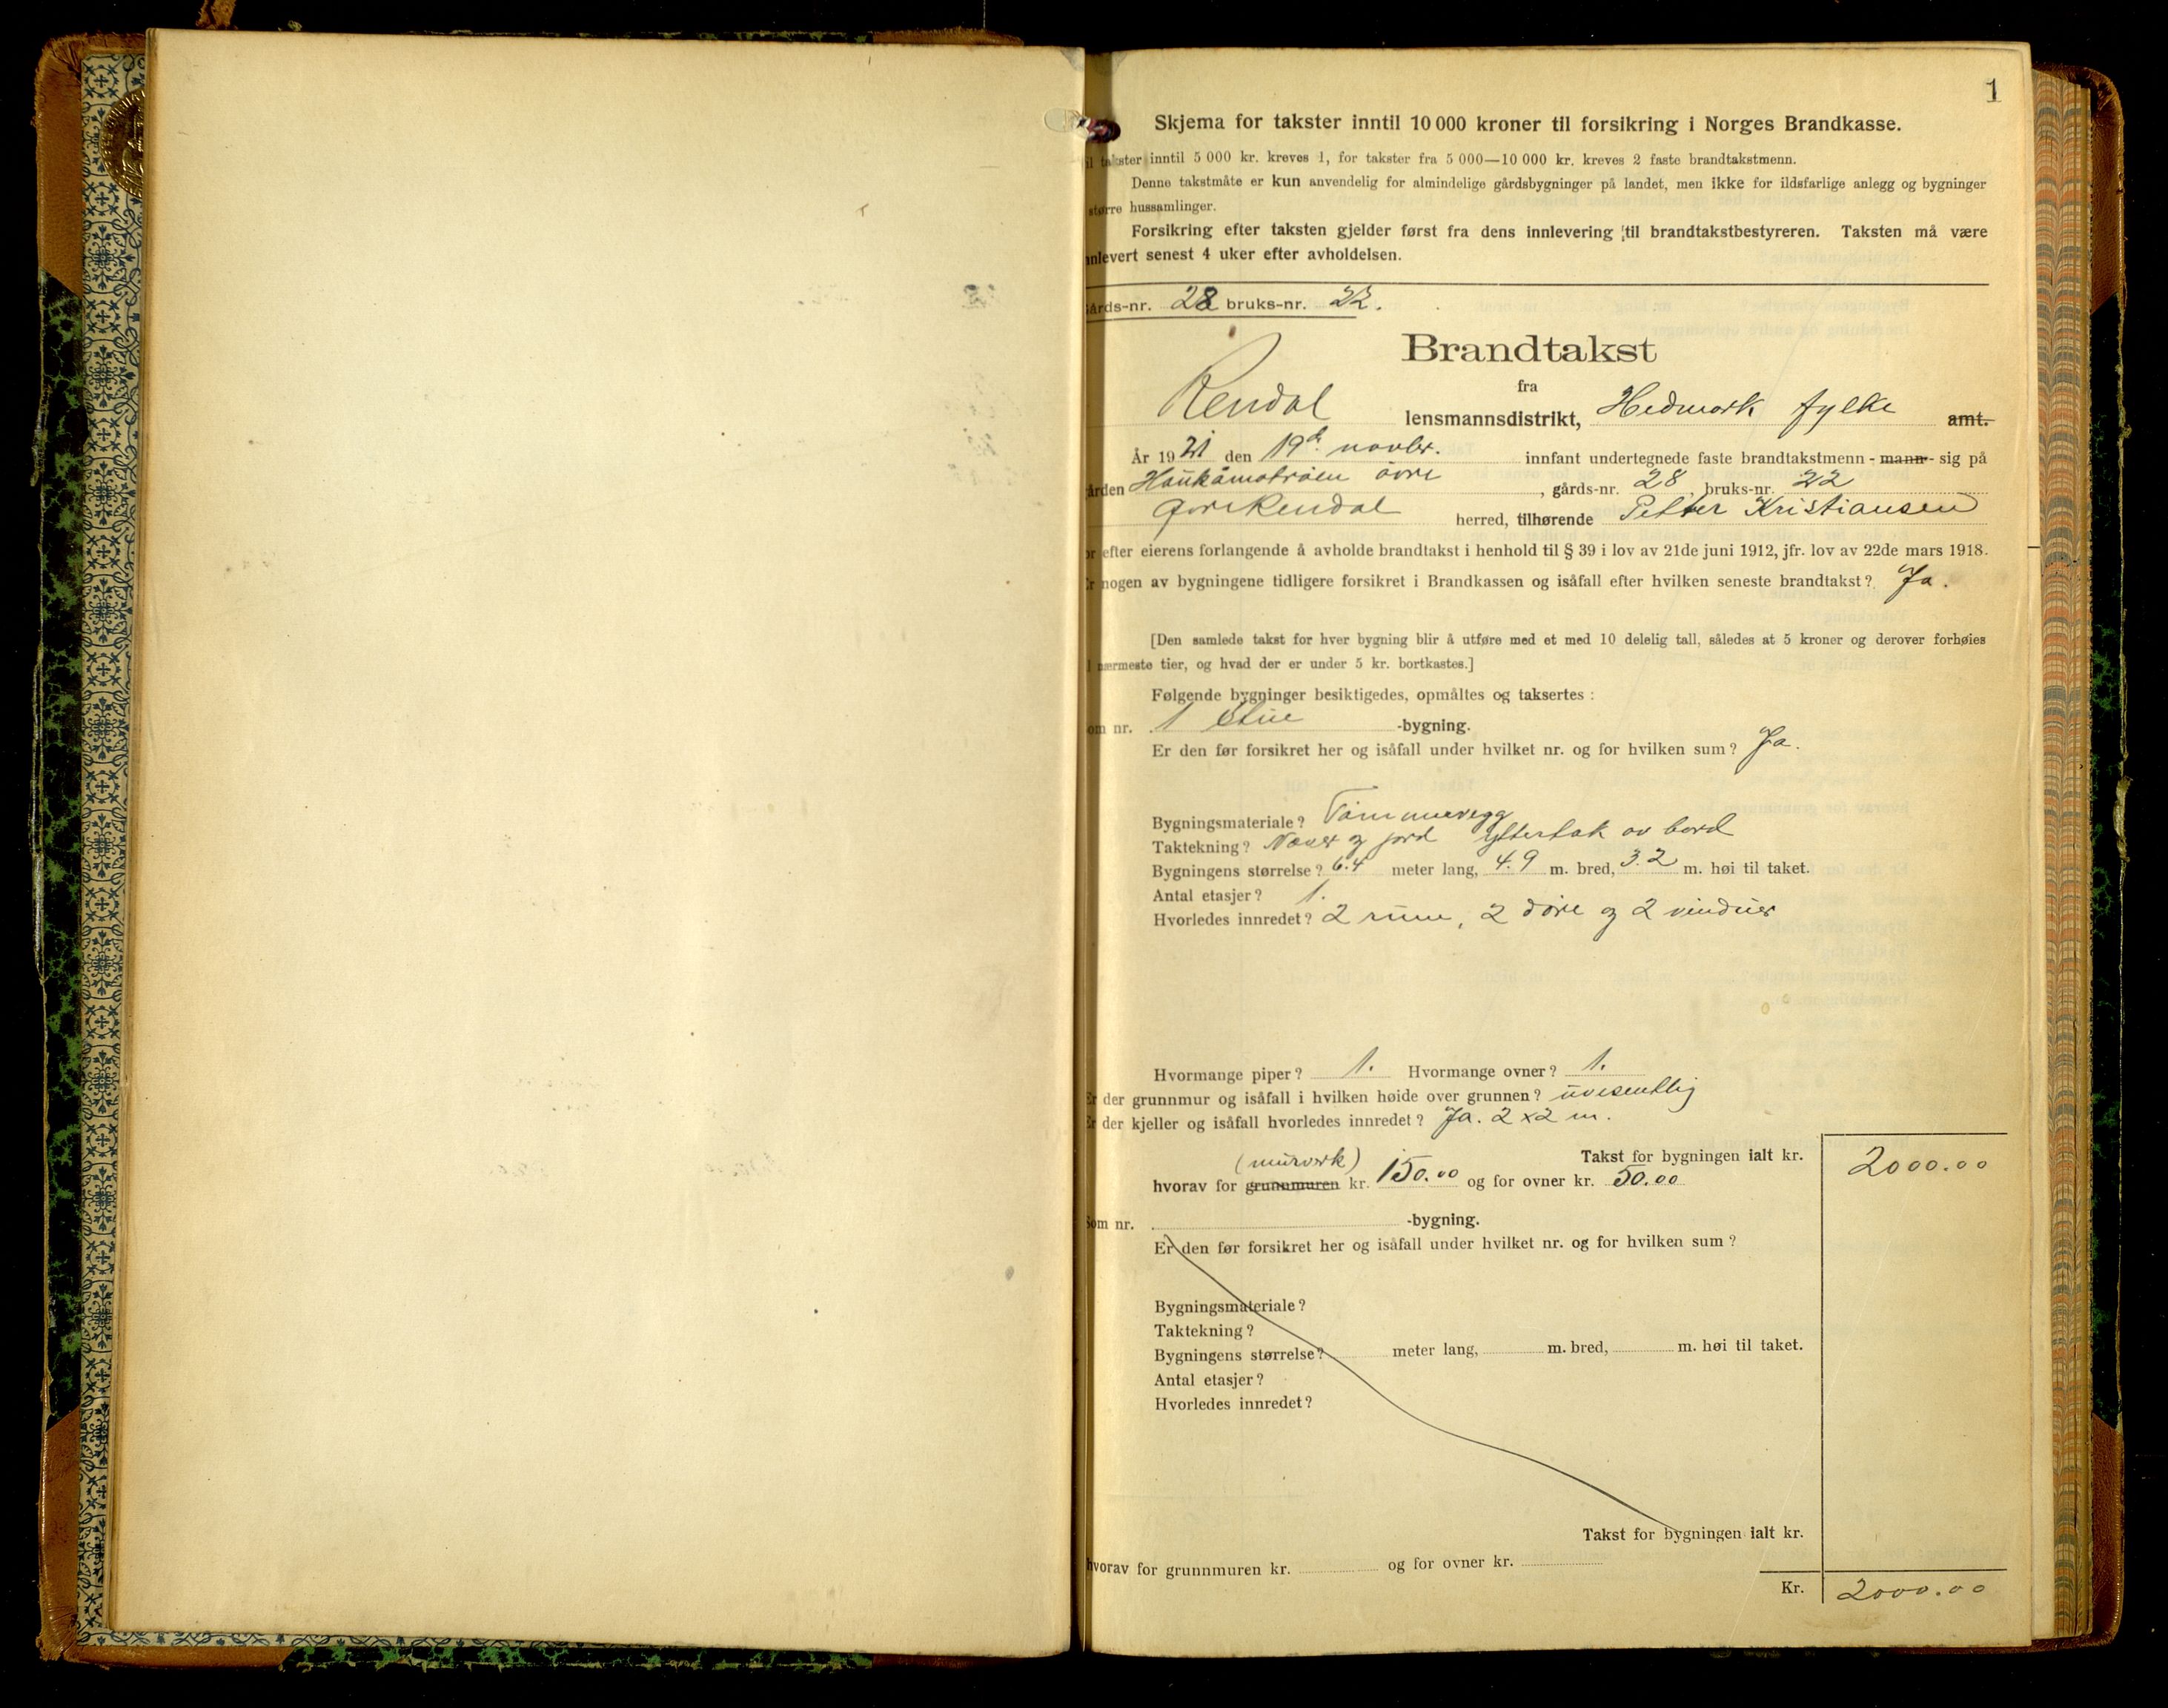 1
Skjema for takster inntil 10 000 kroner til forsikring i Norges Brandkasse.
il takster inntil 5 000 kr. kreves 1, for takster fra 5 000—10 000 kr. kreves 2 faste brandtakstmenn.
Denne takstmåte er kun anvendelig for almindelige gårdsbygninger på landet, men ikke for ildsfarlige anlegg og bygninger
større hussamlinger.
Forsikring efter taksten gjelder først fra dens innlevering til brandtakstbestyreren. Taksten må være
nnlevert senest 4 uker efter avholdelsen.
årds-nr. 28 bruks-nr. 22.
Brandtakst
fra
Rendal lensmannsdistrikt, Hedmark fylke amt.
År 1921 den 19d. novbr. innfant undertegnede faste brandtakstmenn - mann - sig på
ården øvre, gårds-nr. 28, bruks-nr. 22
Øvre Rendal herred, tilhørende Petter Kristiansen
or efter eierens forlangende å avholde brandtakst i henhold til § 39 i lov av 21de juni 1912, jfr. lov av 22de mars 1918.
Er nogen av bygningene tidligere forsikret i Brandkassen og isåfall efter hvilken seneste brandtakst? Ja.
[Den samlede takst for hver bygning blir å utføre med et med 10 delelig tall, således at 5 kroner og derover forhøies
l nærmeste tier, og hvad der er under 5 kr. bortkastes.]
Følgende bygninger besiktigedes, opmåltes og taksertes :
om nr. 1 Stue -bygning.
Er den før forsikret her og isåfall under hvilket nr. og for hvilken sum? Ja.
Bygningsmateriale? Tømmervegg
Taktekning? Næver og jord yttertak av bord
Bygningens størrelse? 6.4 meter lang, 4.9 m. bred, 3.2 m. høi til taket.
Antal etasjer? 1.
Hvorledes innredet? 2 rum, 2 døre og 2 vinduer
Hvormange piper? 1. Hvormange ovner? 1.
Er der grunnmur og isåfall i hvilken høide over grunnen? uvesentlig
Er der kjeller og isåfall hvorledes innredet? Ja. 2 x 2 m.
Takst for bygningen ialt kr. 2000.00
(murverk)
hvorav for grunnmuren kr. 150.00 og for ovner kr. 50.00
Som nr. -bygning.
Er den før forsikret her og isåfall under hvilket nr. og for hvilken sum?
Bygningsmateriale?
Taktekning?
Bygningens størrelse? meter lang, m. bred, m. høi til taket.
Antal etasjer?
Hvorledes innredet?
Takst for bygningen ialt kr.
hvorav for grunnmuren kr. og for ovner kr.
Kr. 2000.00